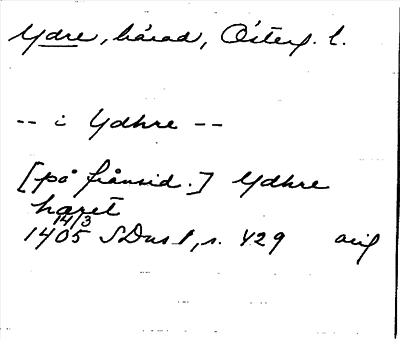 Ydre, härad, Österg. l.
-- i Ydhre --
[på frånsid.] Ydhre
haret
14/3
1405 SDns 1, s. 429 orig